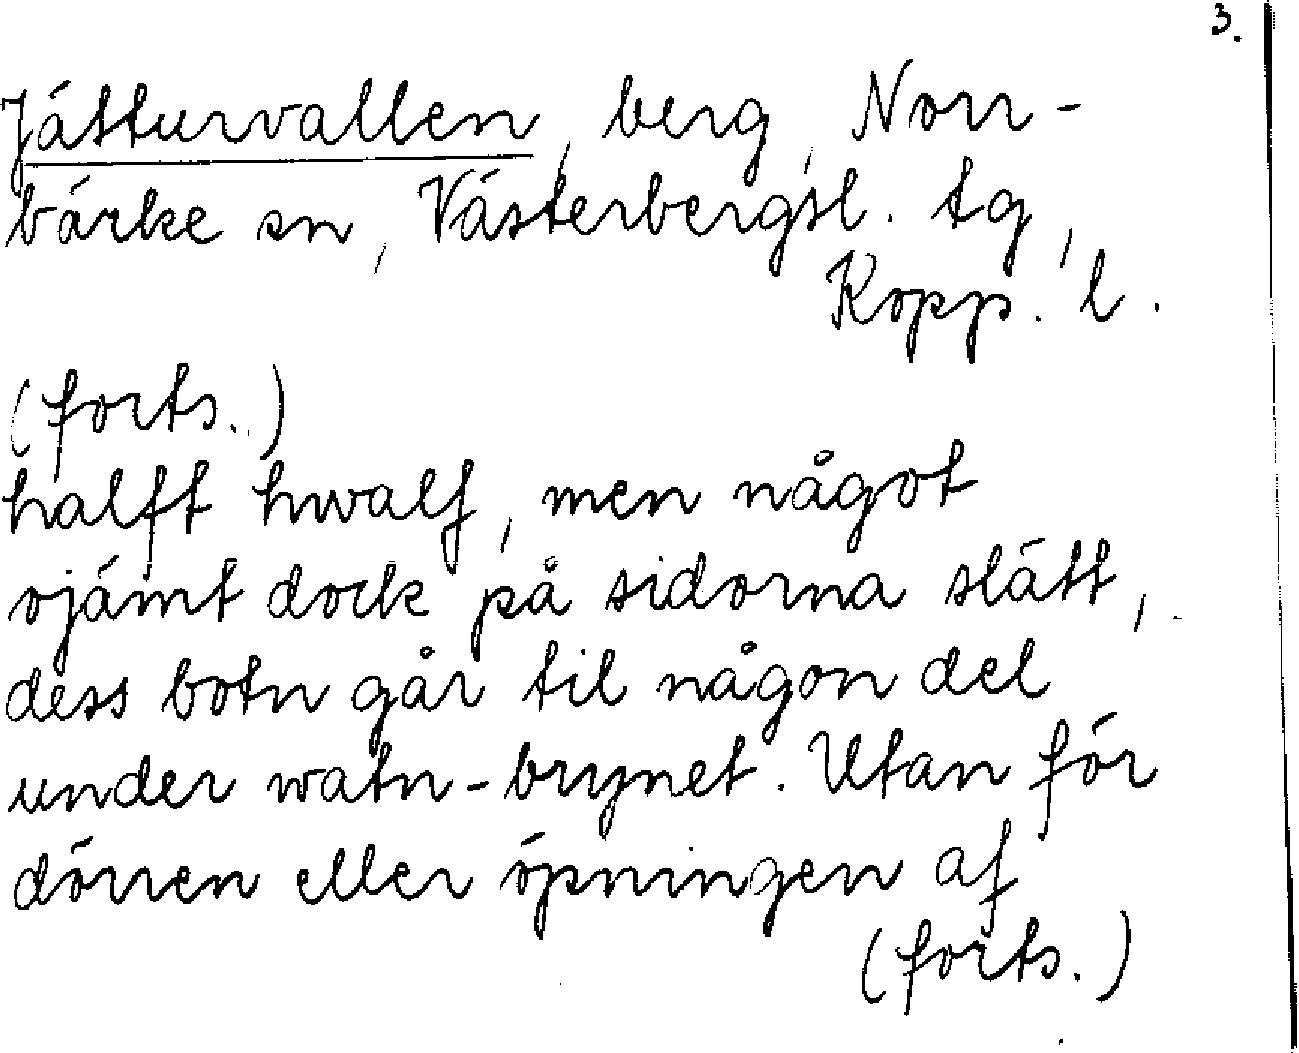 3.
Jätturvallen, berg, Norr-
bärke sn, Västerbergsl. tg,
Kopp. l.
(forts.)
halft hwalf, men något
ojämt dock på sidorna slätt,
dess botn går til någon del
under watn-brynet. Utan för
dörren eller öpningen af
(forts.)